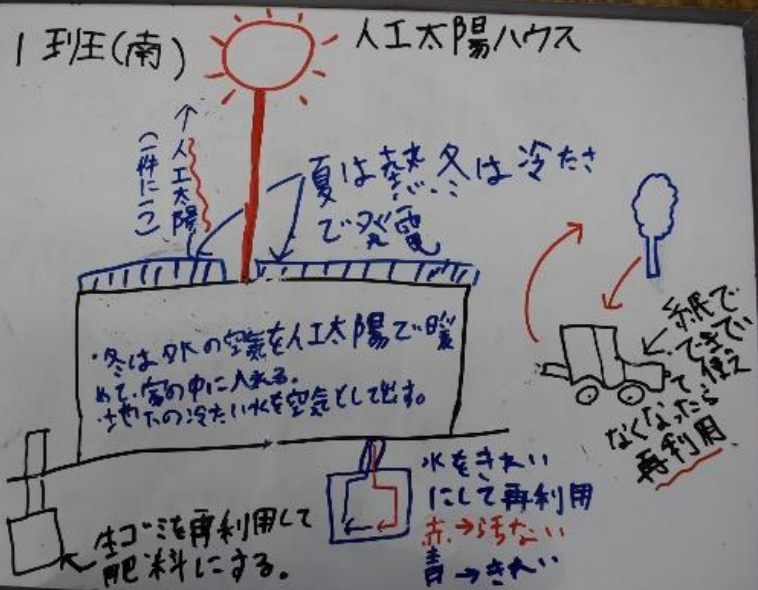 1班(南)
人工太陽ハウス
↑人工太陽
(一件に一つ)
夏は熱冬は冷たさ
で発電
・冬は外の空気を人工太陽で暖
めて、家の中に入れる。
・地下の冷たい水を空気として出す。
紙で
できてい
て使え
なくなったら
再利用
水をきれい
にして再利用
赤→汚ない
青→きれい
生ゴミを再利用して
肥料にする。